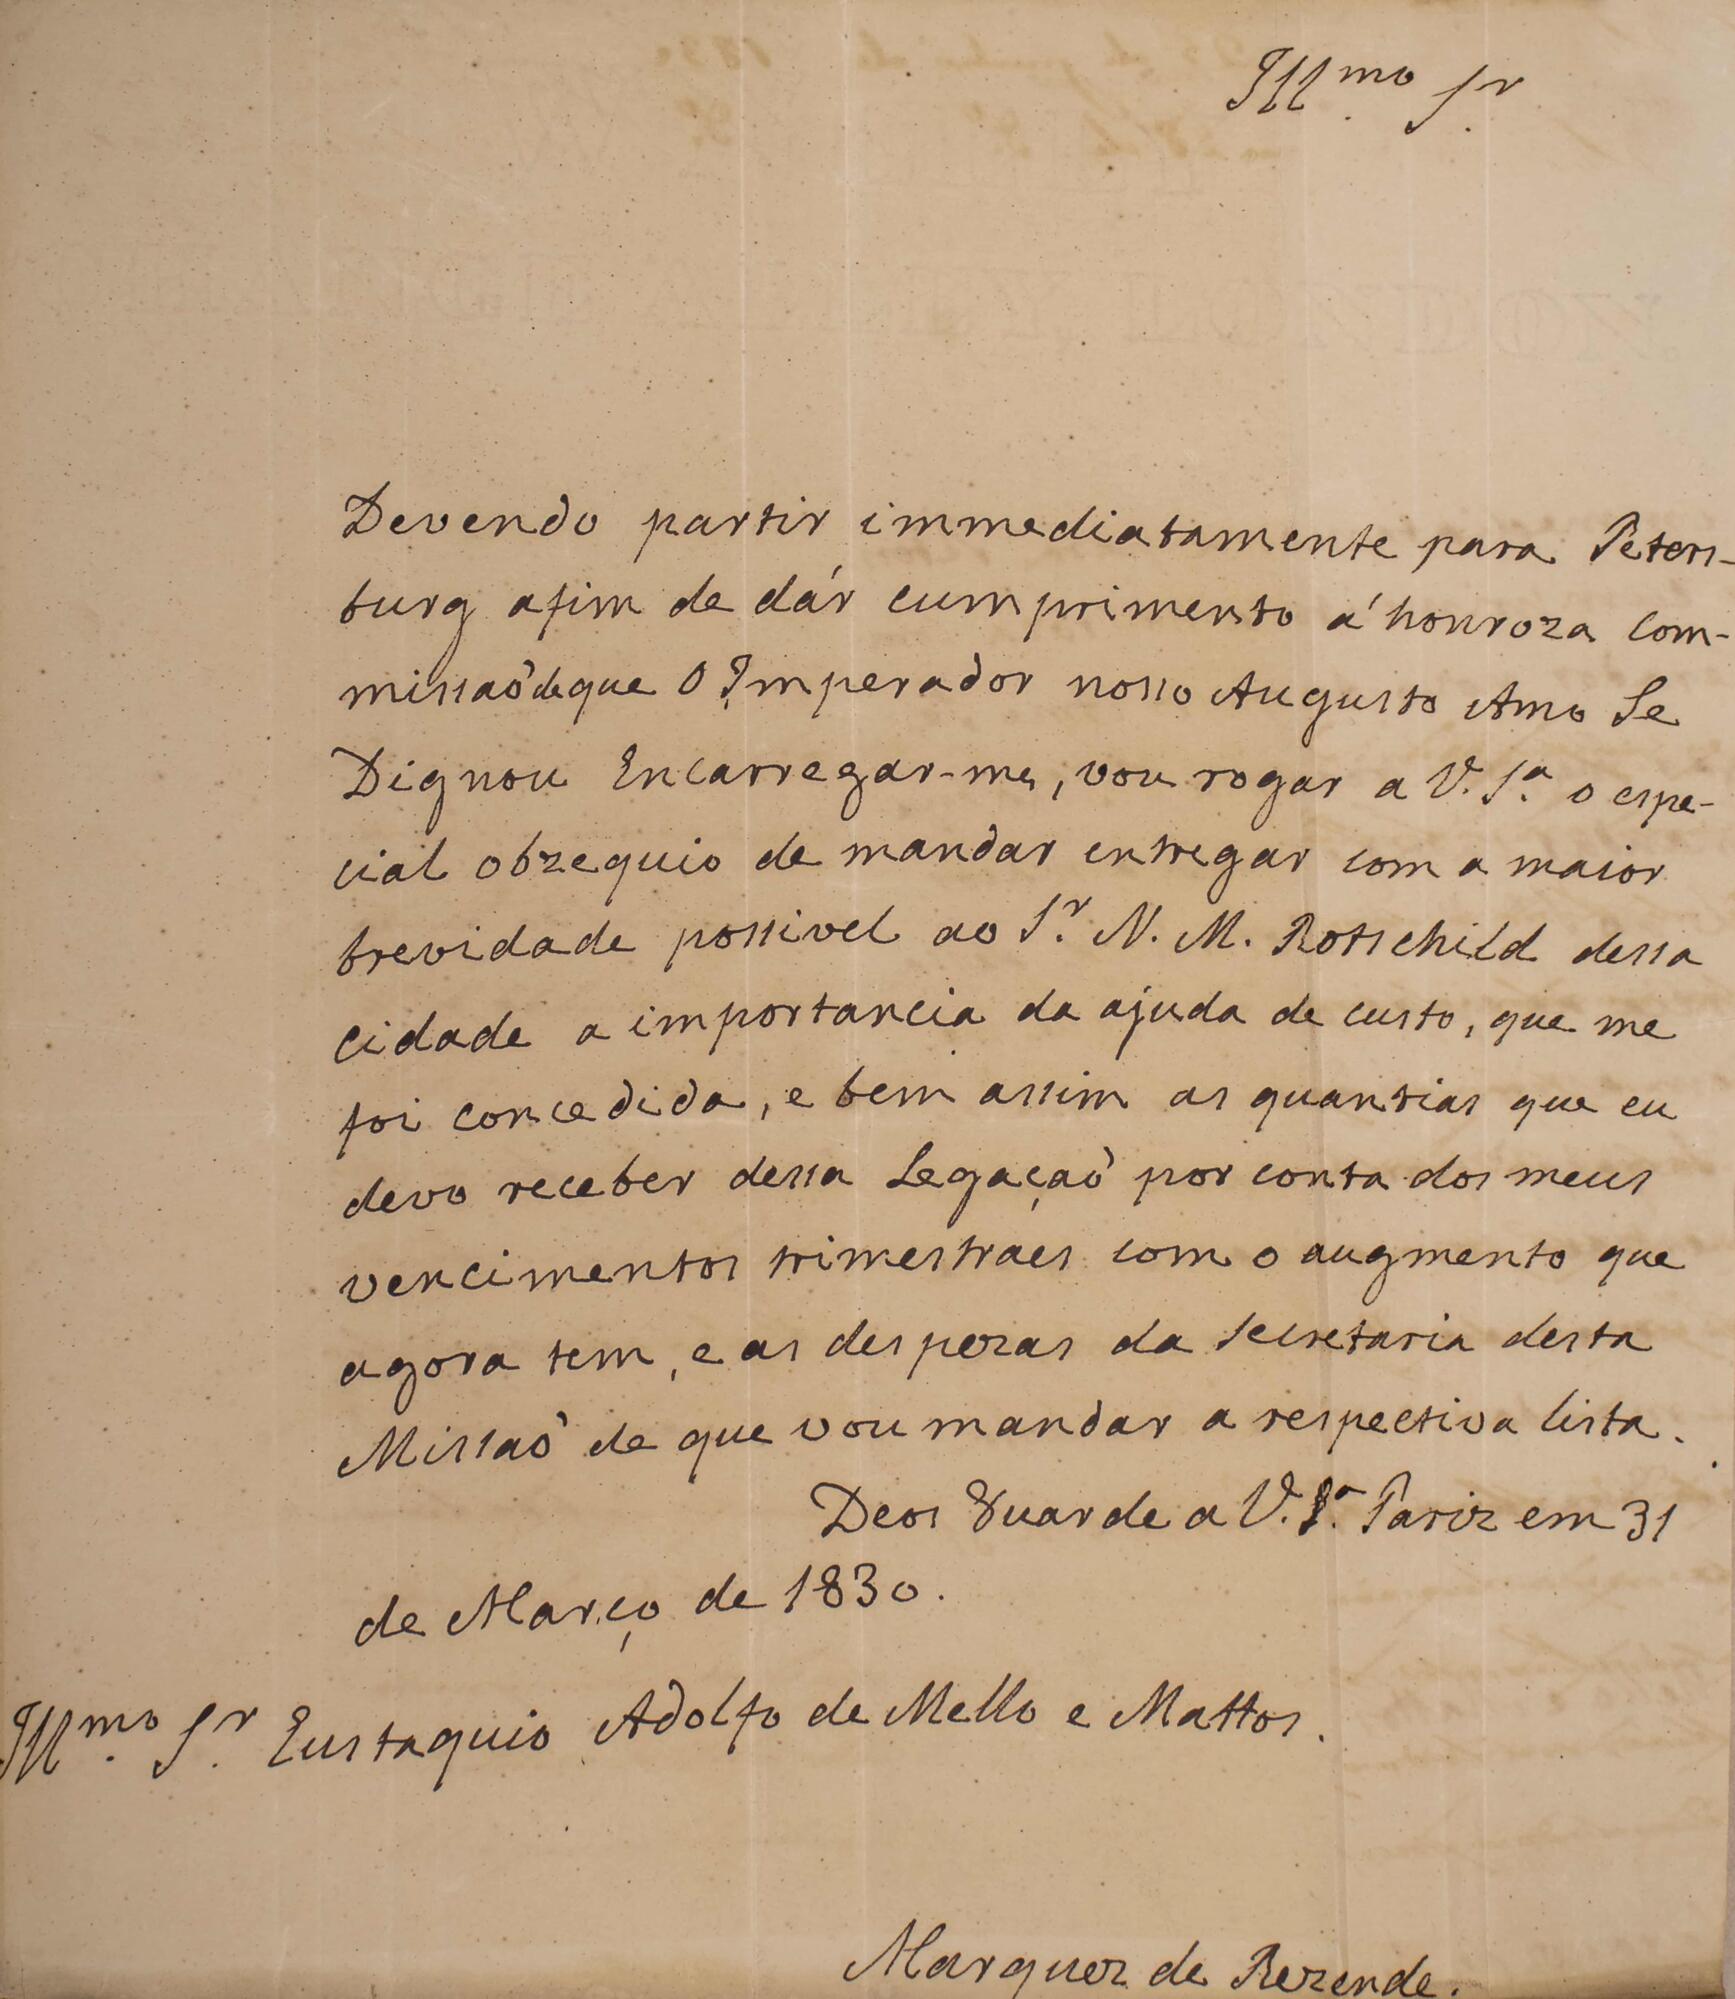 Ill.mo S.r
Devendo partir immediatamente para Peters-
burg afim de dár cumprimento á honroza com-
missaõ de que O Imperador nosso Augusto Amo Se
Dignou Encarregar-me, vou rogar a V. S.a o espe-
cial obzequio de mandar entregar com a maior
brevidade possivel ao S.r N. M. Rotschild dessa
cidade a importancia da ajuda de custo, que me
foi concedida, e bem assim as quantias que eu
devo receber dessa Legaçaõ por conta dos meus
vencimentos trimestraes com o augmento que
agora tem, e as despezas da Secretaria desta
Missaõ de que vou mandar a respectiva lista.
Deos Guarde a V. S.a Pariz em 31
de Março de 1830.
Ill.mo S.r Eustaquio Adolfo de Mello e Mattos.
Marquez de Rezende.